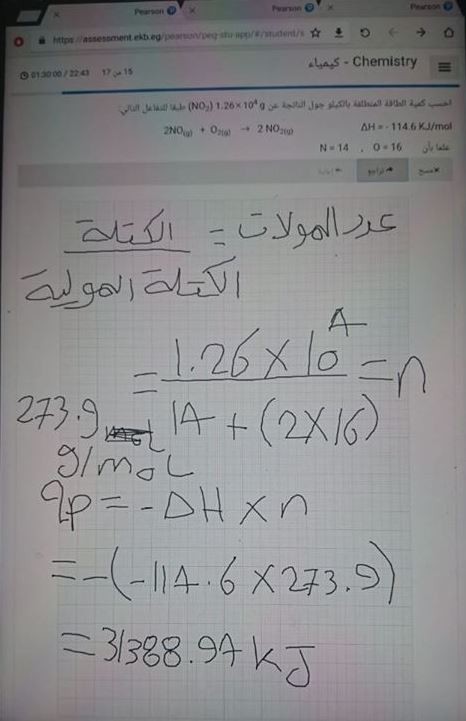 Pearson
Pearson
Pearson
https://assessment.ekb.eg/pearson/peg-stu-app/#/student/s
Chemistry - كيمياء
15 من 17
01:30:00 / 22:43
احسب كمية الطاقة المنطلقة بالكيلو جول الناتجة عن 1.26 × 10⁴ g (NO₂) طبقا للتفاعل التالي:
2NO(g) + O₂(g) → 2 NO₂(g) ΔH = - 114.6 KJ/mol
علما بأن N = 14 , O = 16
مسح
تراجع
عدد المولات = الكتلة
الكتلة المولية
= 1.26 × 10⁴ = n
14 + (2×16)
273.9
g/moL
qp = -ΔH × n
= -(-114.6 × 273.9)
= 31388.94 KJ